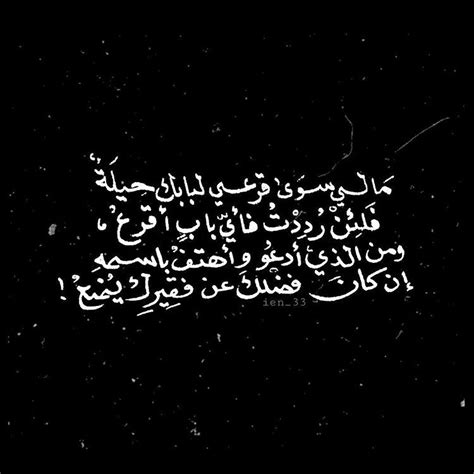 مَا لي سِوَى قرعي لبابك حِيلَةٌ
فَلَئِنْ رُدِدْتُ فأيّ بابٍ أقرعُ ،
ومن الذي أدعُو وأهتفُ باسمهِ
إن كانَ فضلكَ عن فقيركِ يُمنعُ !
ien_33